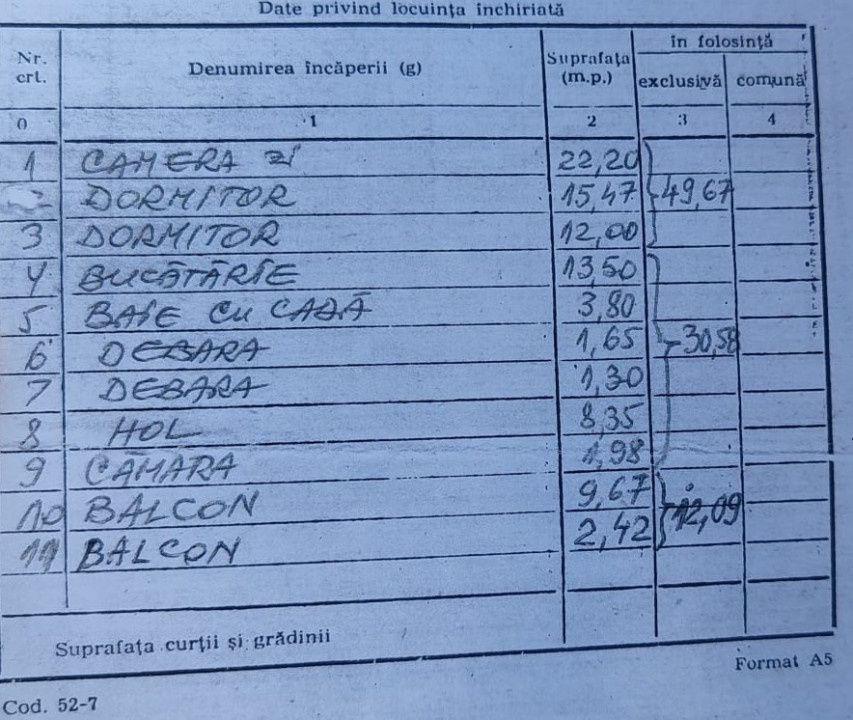 Date privind locuința închiriată
Nr. crt. Denumirea încăperii (g) Suprafața (m.p.) în folosință
exclusivă comună
0 1 2 3 4
1 CAMERA zi 22,20
2 DORMITOR 15,47 49,67
3 DORMITOR 12,00
4 BUCĂTĂRIE 13,50
5 BAIE CU CADĂ 3,80
6 DEBARA 1,65 30,58
7 DEBARA 1,30
8 HOL 8,35
9 CĂMARA 1,98
10 BALCON 9,67 12,09
11 BALCON 2,42
Suprafața curții și grădinii
Format A5
Cod. 52-7